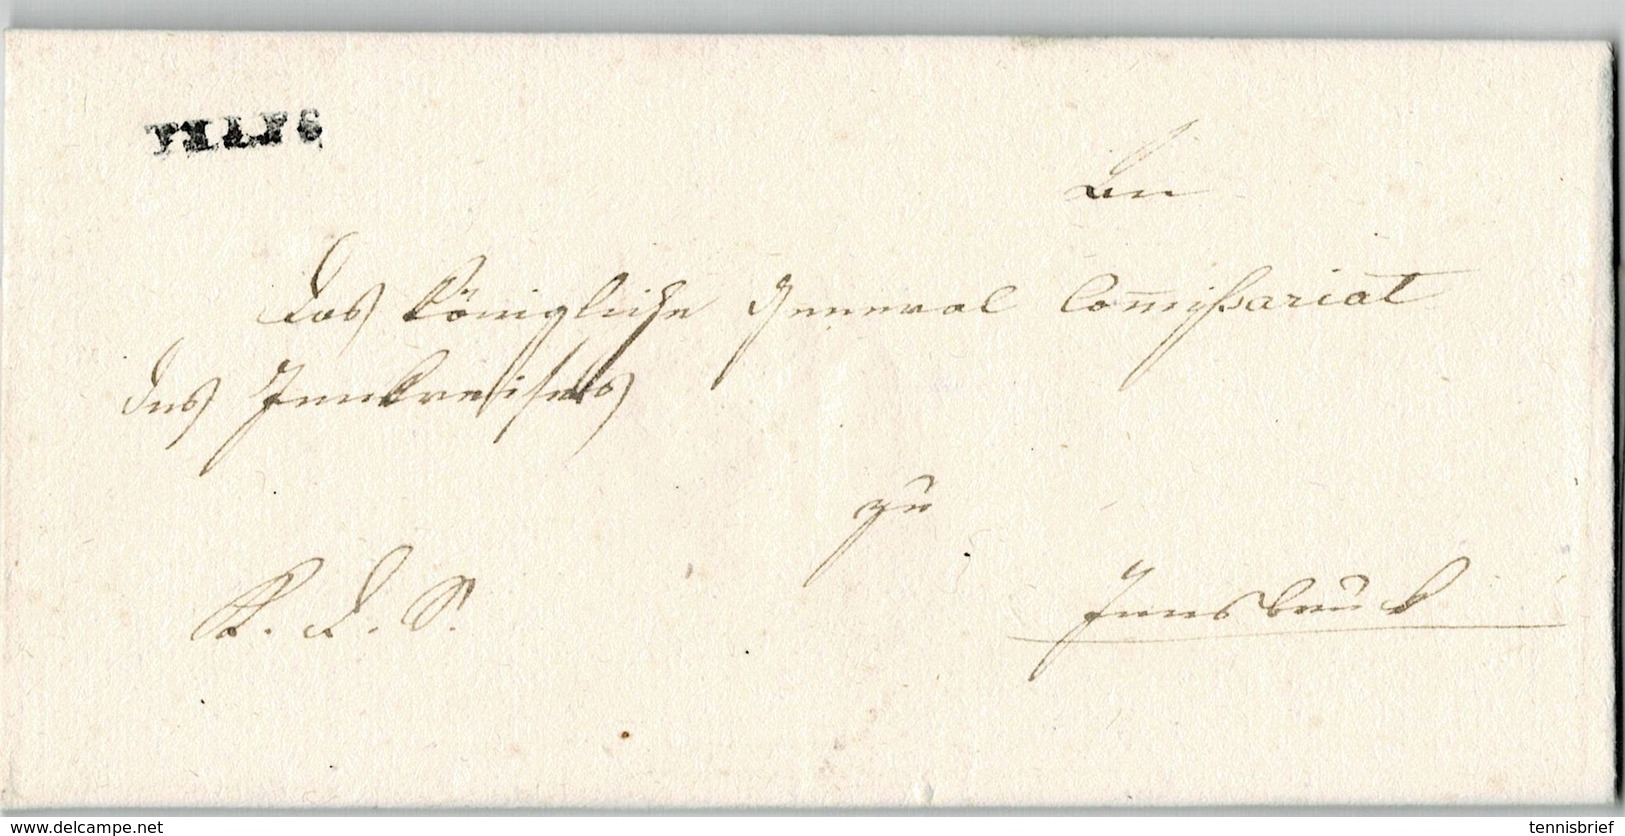 TELFS
An
das Königliche General Com̅ißariat
des Innkreises
zu
Innsbruck
R. D. S.
www.delcampe.net
tennisbrief